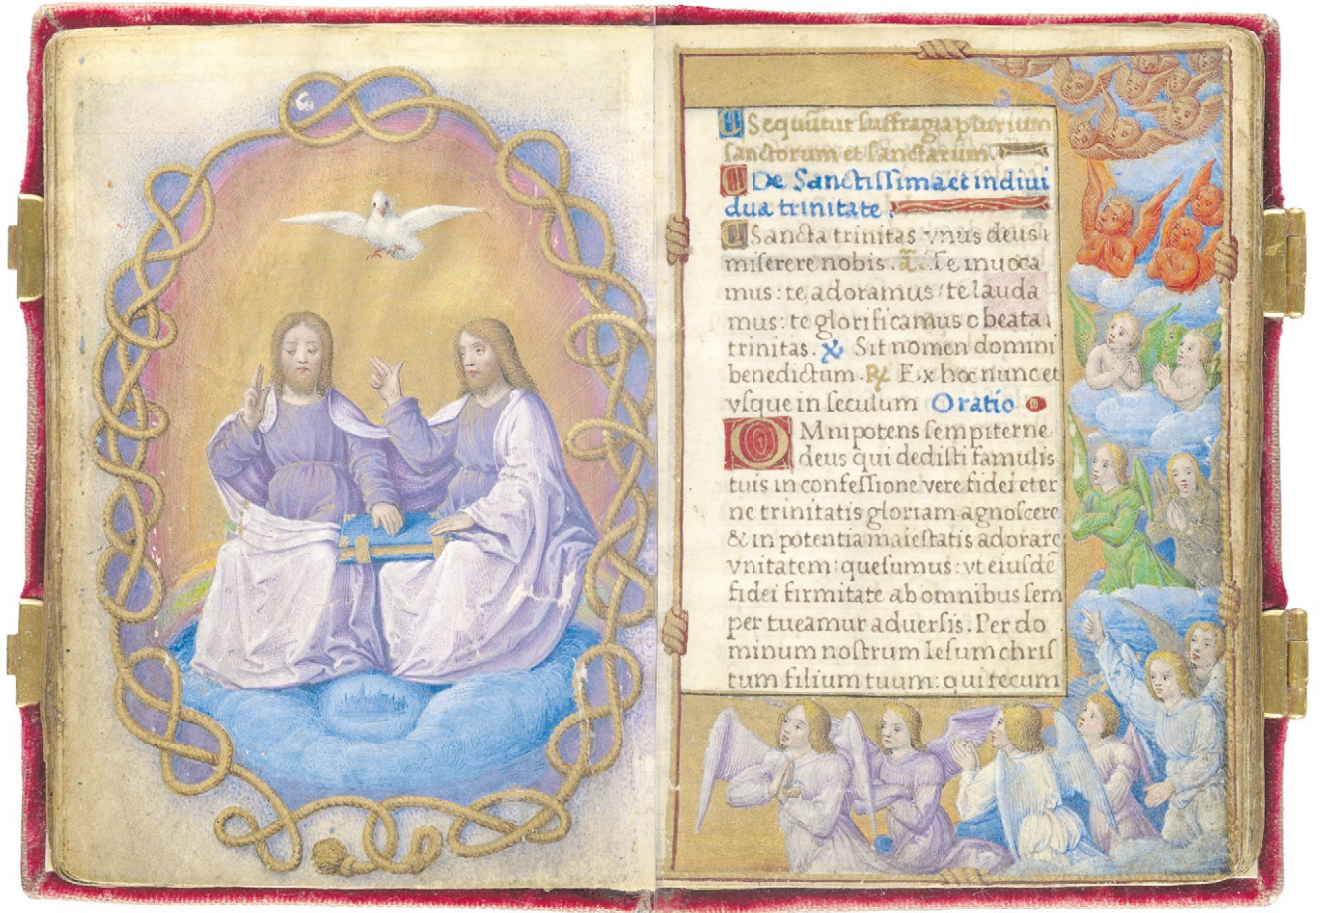 Sequūtur suffragia plurium
sanctorum et sanctarum.
De Sanctissima et indiui
dua trinitate.
Sancta trinitas vnus deus
miserere nobis. ā. Te inuoca
mus: te adoramus: te lauda
mus: te glorificamus o beata
trinitas. ℣ Sit nomen domini
benedictum. ℟ Ex hoc nunc et
vsque in seculum Oratio
OMnipotens sempiterne
deus qui dedisti famulis
tuis in confessione vere fidei eter
ne trinitatis gloriam agnoscere
& in potentia maiestatis adorare
vnitatem: quesumus: vt eiusdē
fidei firmitate ab omnibus sem
per tueamur aduersis. Per do
minum nostrum Iesum chris
tum filium tuum: qui tecum